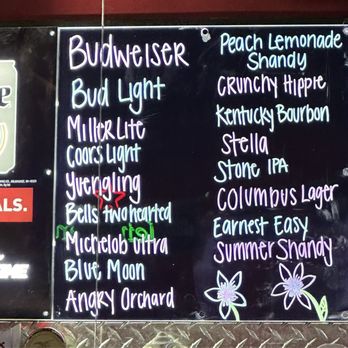 Budweiser
Bud Light
Miller Lite
Coors Light
Yuengling
Bells two hearted
Michelob ultra
Blue Moon
Angry Orchard
Peach Lemonade
Shandy
Crunchy Hippie
Kentucky Bourbon
Stella
Stone IPA
Columbus Lager
Earnest Easy
Summer Shandy
ALS.